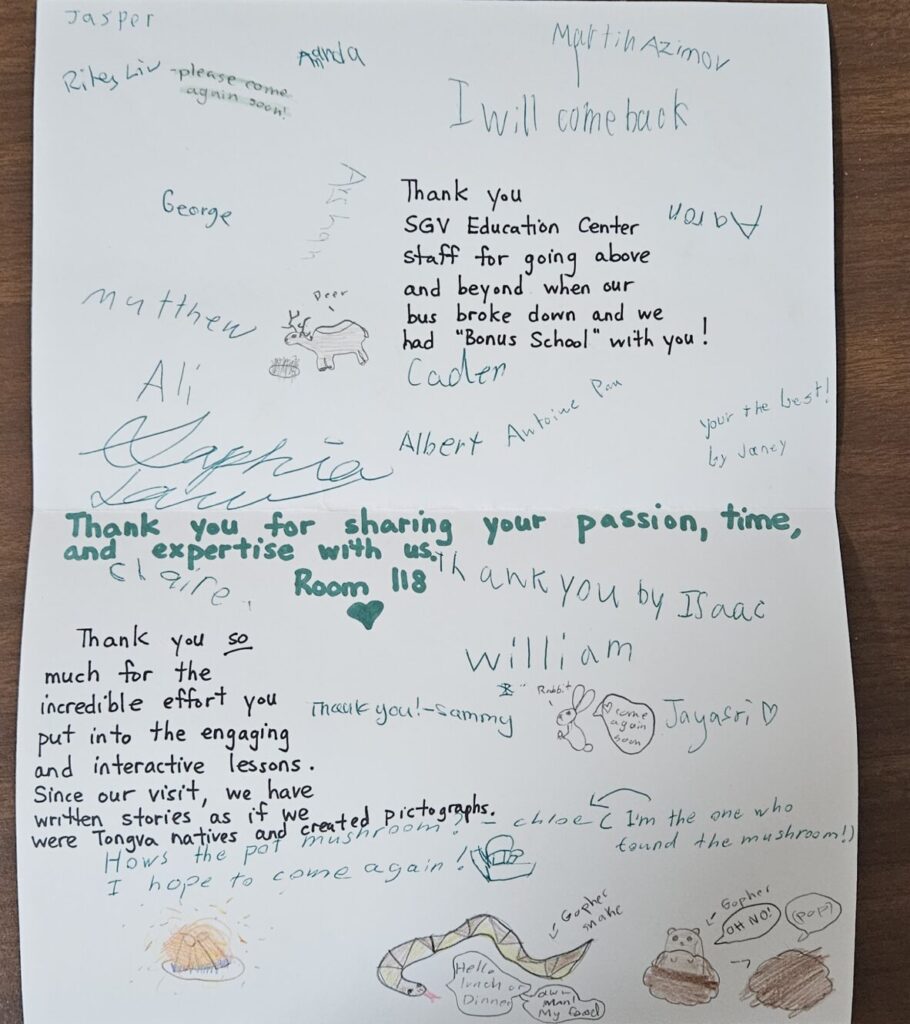 Jasper
Martin Azimov
Amanda
Riley Liv -please come
again soon!
I will come back
George
Thank you
SGV Education Center
staff for going above
and beyond when our
bus broke down and we
had "Bonus School" with you!
Aaron
Matthew
Deer
Ali
Caden
Albert
Antoine Pan
your the best!
by Janey
Sophia
Thank you for sharing your passion, time,
and expertise with us.
Room 118
Claire
Thank you by Isaac
William
Thank you so
much for the
incredible effort you
put into the engaging
and interactive lessons.
Since our visit, we have
written stories as if we
were Tongva natives and created pictographs.
Thank you!-Sammy
Rabbit
come
again
soon
Jayasri
Hows the pot mushroom? - chloe (I'm the one who
found the mushroom!)
I hope to come again!
Gopher
snake
Hello
lunch or
Dinner
aww
man!
My food
Gopher
OH NO!
(pop)